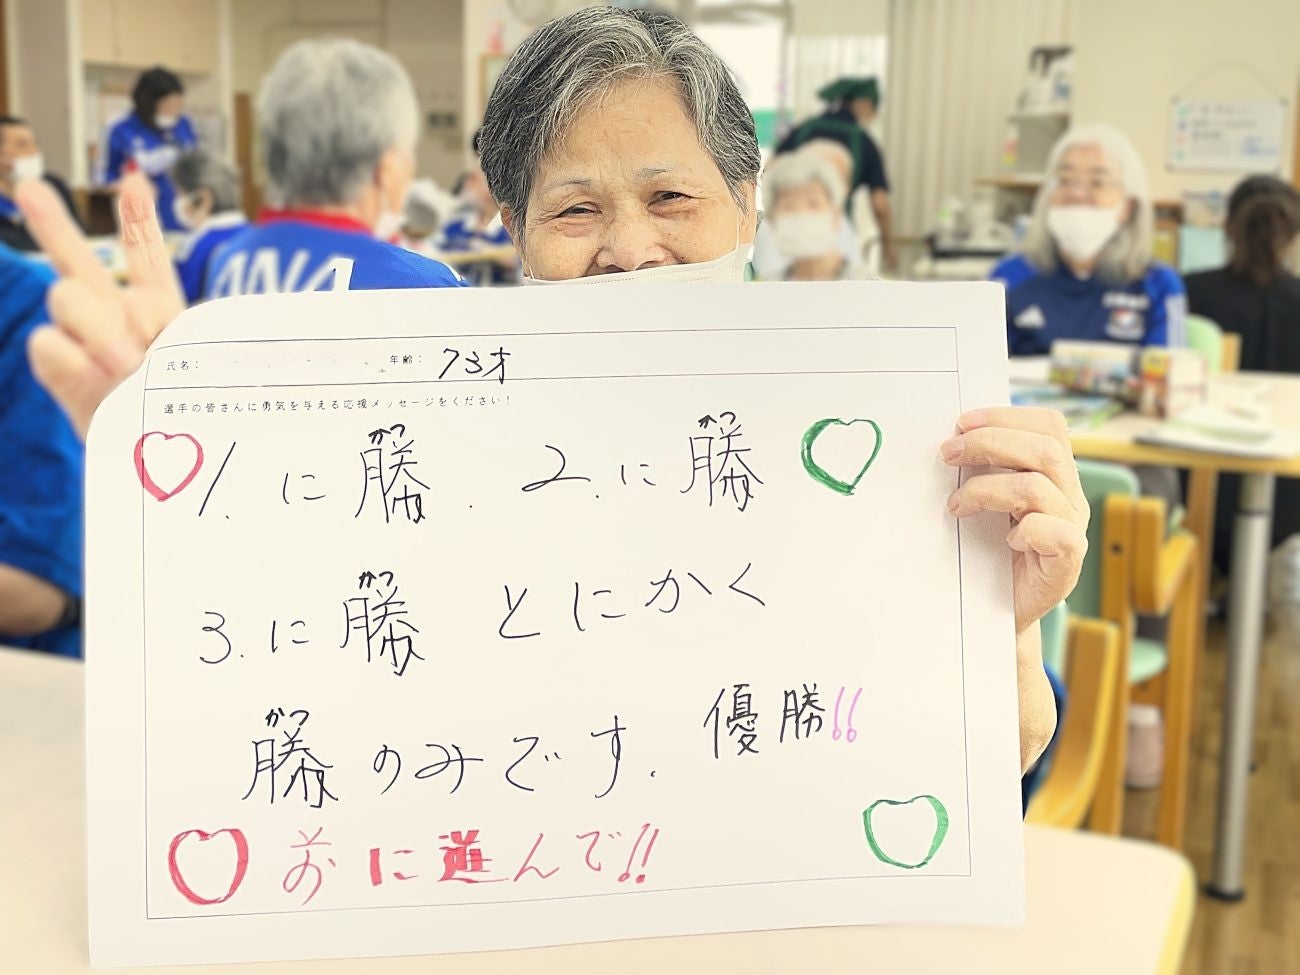 ANA
氏名: 年齢: 73才
選手の皆さんに勇気を与える応援メッセージをください!
かつ かつ
1. に 勝. 2. に 勝
かつ
3. に 勝 とにかく
かつ
勝のみです. 優勝!!
前に進んで!!